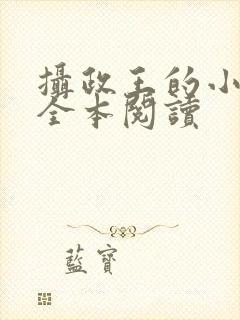 攝政王的小
全本閱讀
藍寶